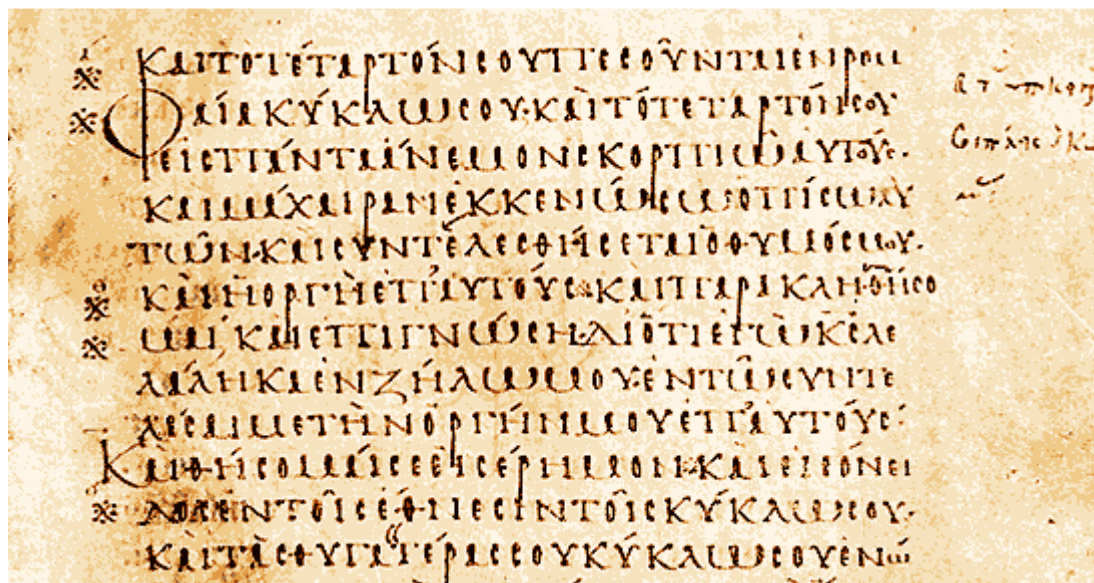 ΚΑΙΤΟΤΕΤΑΡΤΟΝϹΟΥΠΕϹΟΥΝΤΑΙΕΝΡΟΜ
ΦΑΙΑΚΥΚΛΩϹΟΥ·ΚΑΙΤΟΤΕΤΑΡΤΟΝϹΟΥ
ΕΙϹΠΑΝΤΑΑΝΕΜΟΝϹΚΟΡΠΙΩΑΥΤΟΥϹ·
ΚΑΙΜΑΧΑΙΡΑΝΕΚΚΕΝΩϹΩΟΠΙϹΩΑΥ
ΤΩΝ·ΚΑΙϹΥΝΤΕΛΕϹΘΗϹΕΤΑΙΟΘΥΜΟϹΜΟΥ·
ΚΑΙΗΟΡΓΗΕΠΑΥΤΟΥϹ·ΚΑΙΠΑΡΑΚΛΗΘΗϹΟ
ΜΑΙ·ΚΑΙΕΠΙΓΝΩϹΗ·ΔΙΟΤΙΕΓΩΚϹΛΕ
ΛΑΛΗΚΑΕΝΖΗΛΩΜΟΥ·ΕΝΤΩϹΥΝΤΕ
ΛΕϹΑΙΜΕΤΗΝΟΡΓΗΝΜΟΥΕΠΑΥΤΟΥϹ·
ΚΑΙΘΗϹΟΜΑΙϹΕΕΙϹΕΡΗΜΟΝ·ΚΑΙΕΙϹΟΝΕΙ
ΔΟϹΕΝΤΟΙϹΕΘΝΕϹΙΝΤΟΙϹΚΥΚΛΩϹΟΥ·
ΚΑΙΤΑϹΘΥΓΑΤΕΡΑϹϹΟΥΚΥΚΛΩϹΟΥΕΝΩ